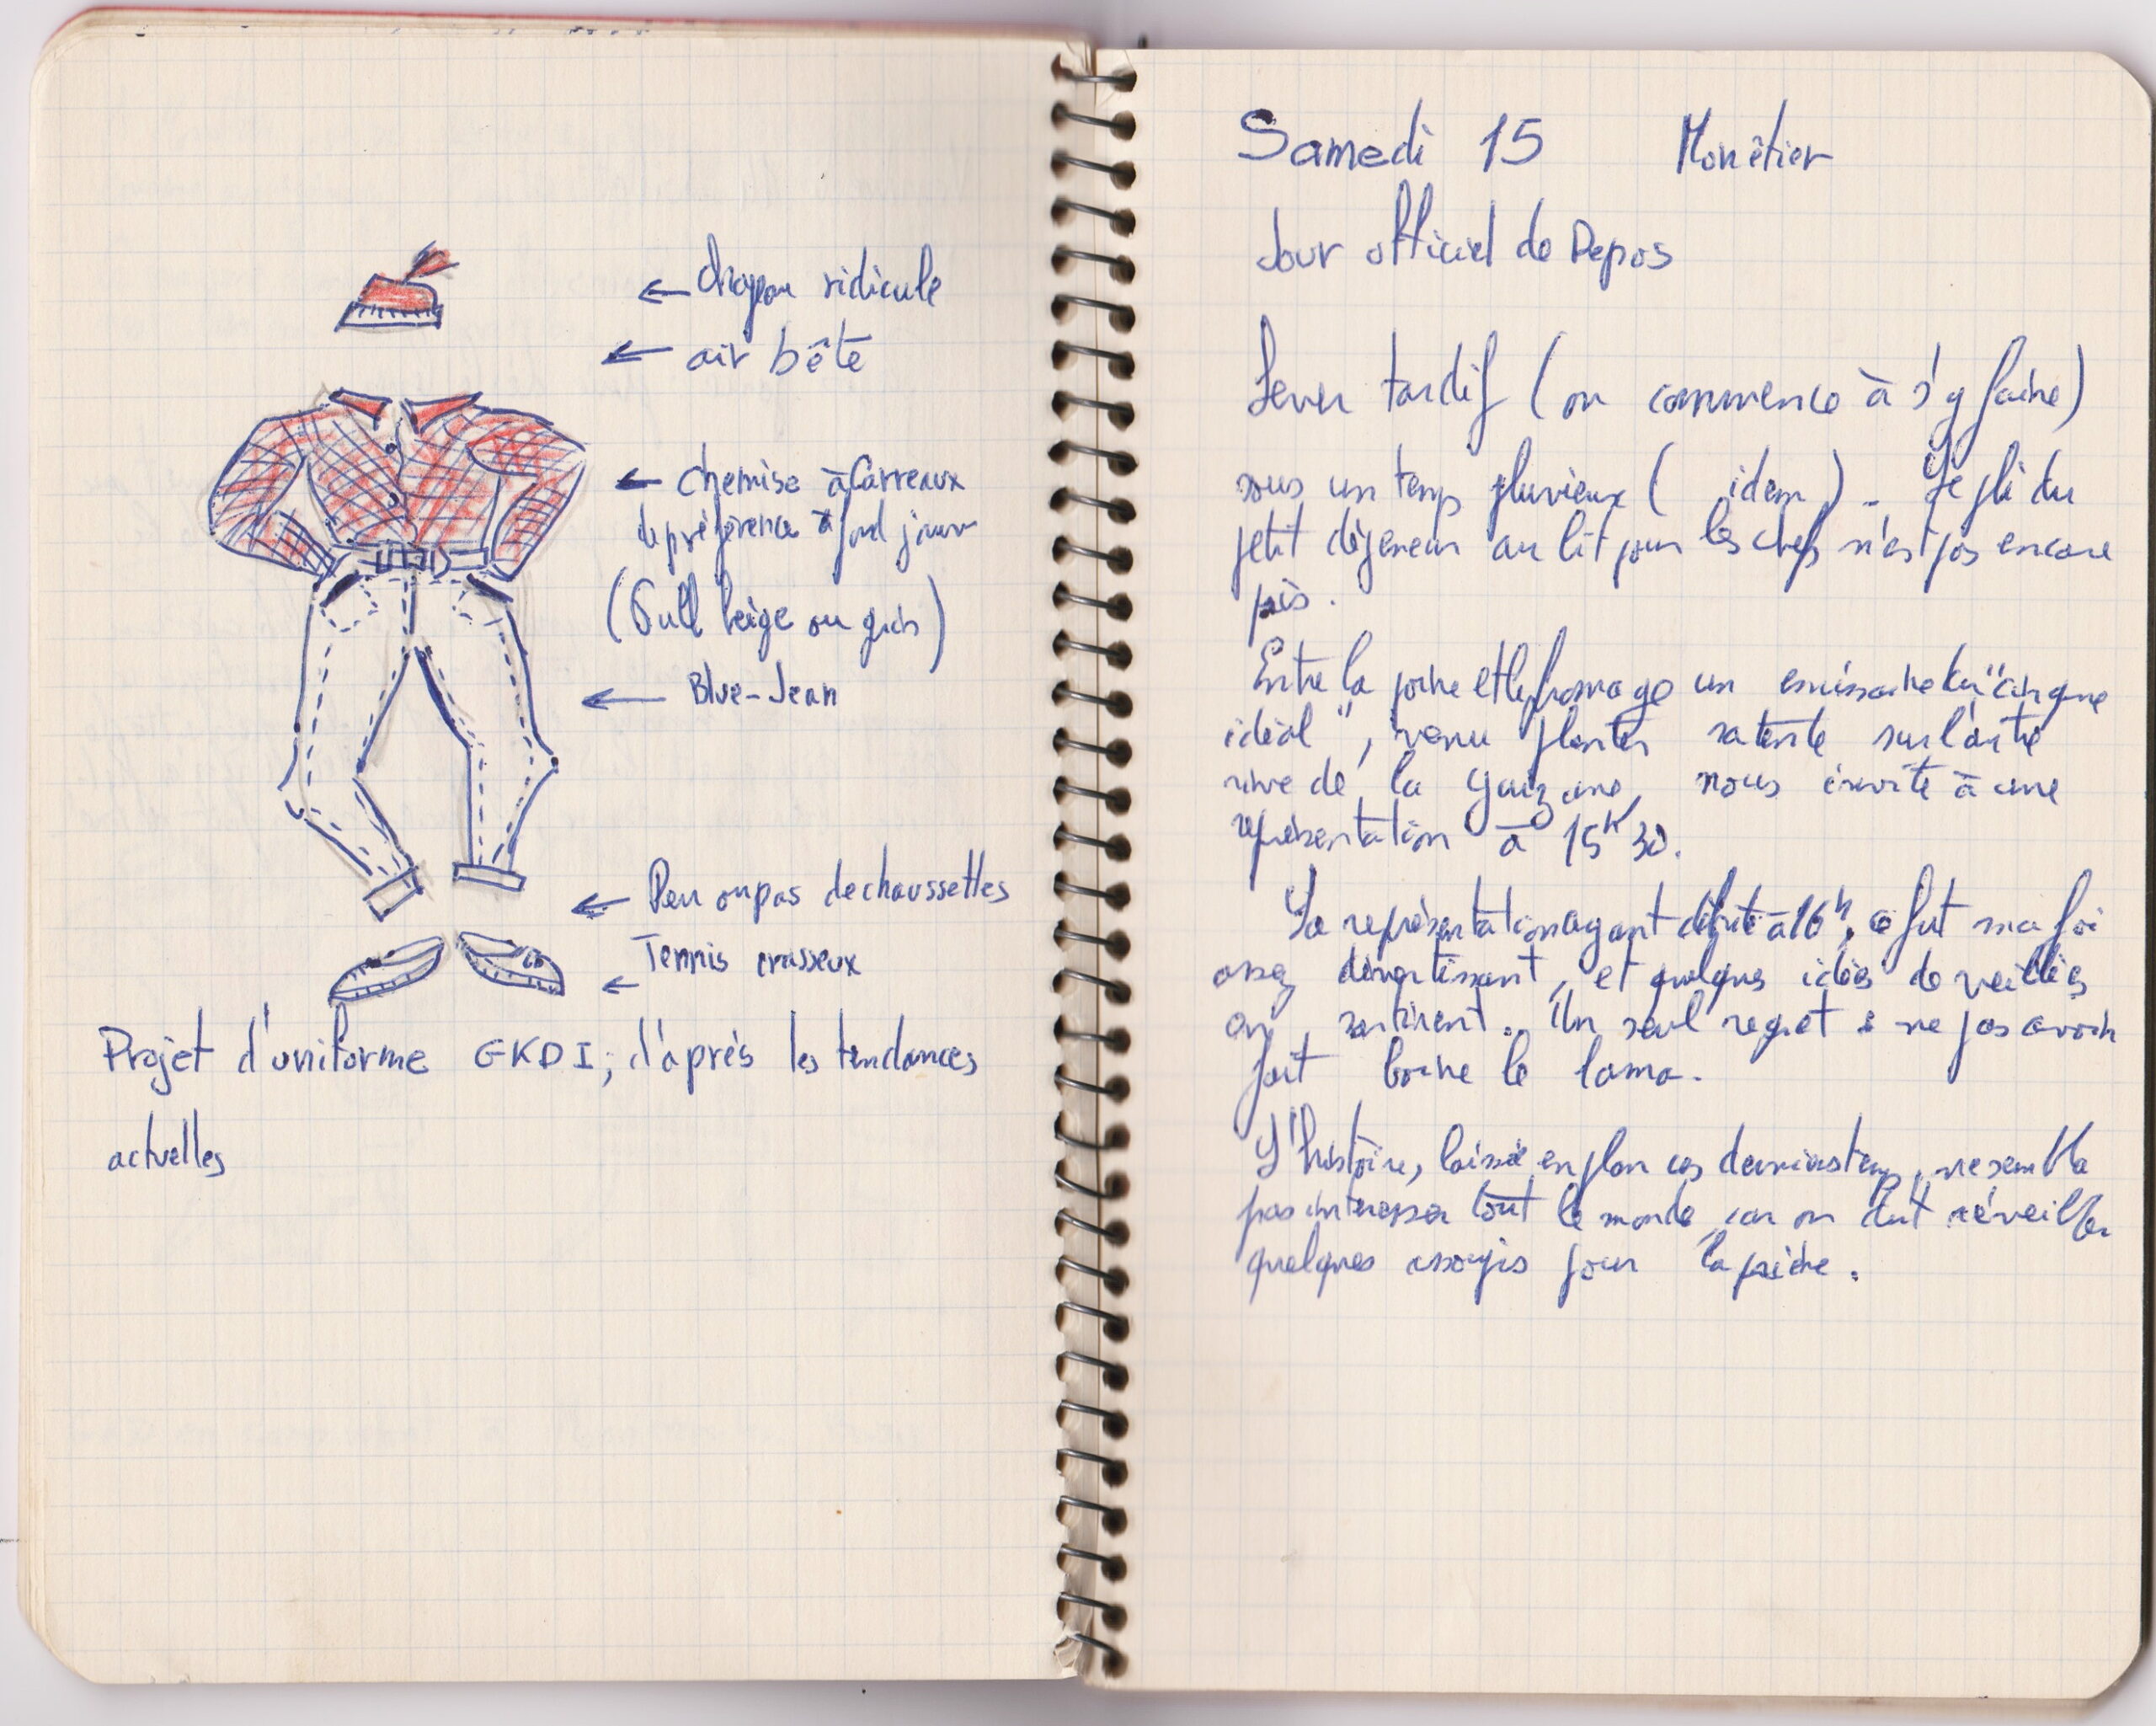 chapeau ridicule
air bête
chemise à Carreaux
de préférence à fond jaune
(Pull beige ou gris)
Blue-Jean
Peu ou pas de chaussettes
Tennis crasseux
Projet d'uniforme GKDI, d'après les tendances
actuelles
Samedi 15 Monêtier
Jour officiel de Repos
Lever tardif (on commence à s'y faire)
sous un temps pluvieux ( idem ) - Le pli du
petit déjeuner au lit pour les chefs n'est pas encore
pris.
Entre la poire et le fromage un émissaire du "cirque
idéal", venu planter sa tente sur l'autre
rive de la Guizane, nous invite à une
représentation à 15h30.
La représentation ayant débuté à 16h, ce fut ma foi
assez divertissant, et quelques idées de veillées
en sortirent. Un seul regret : ne pas avoir
fait boire le lama.
L'histoire, laissée en plan ces derniers temps, ne sembla
pas intéresser tout le monde, car on dut réveiller
quelques assoupis pour la prière.